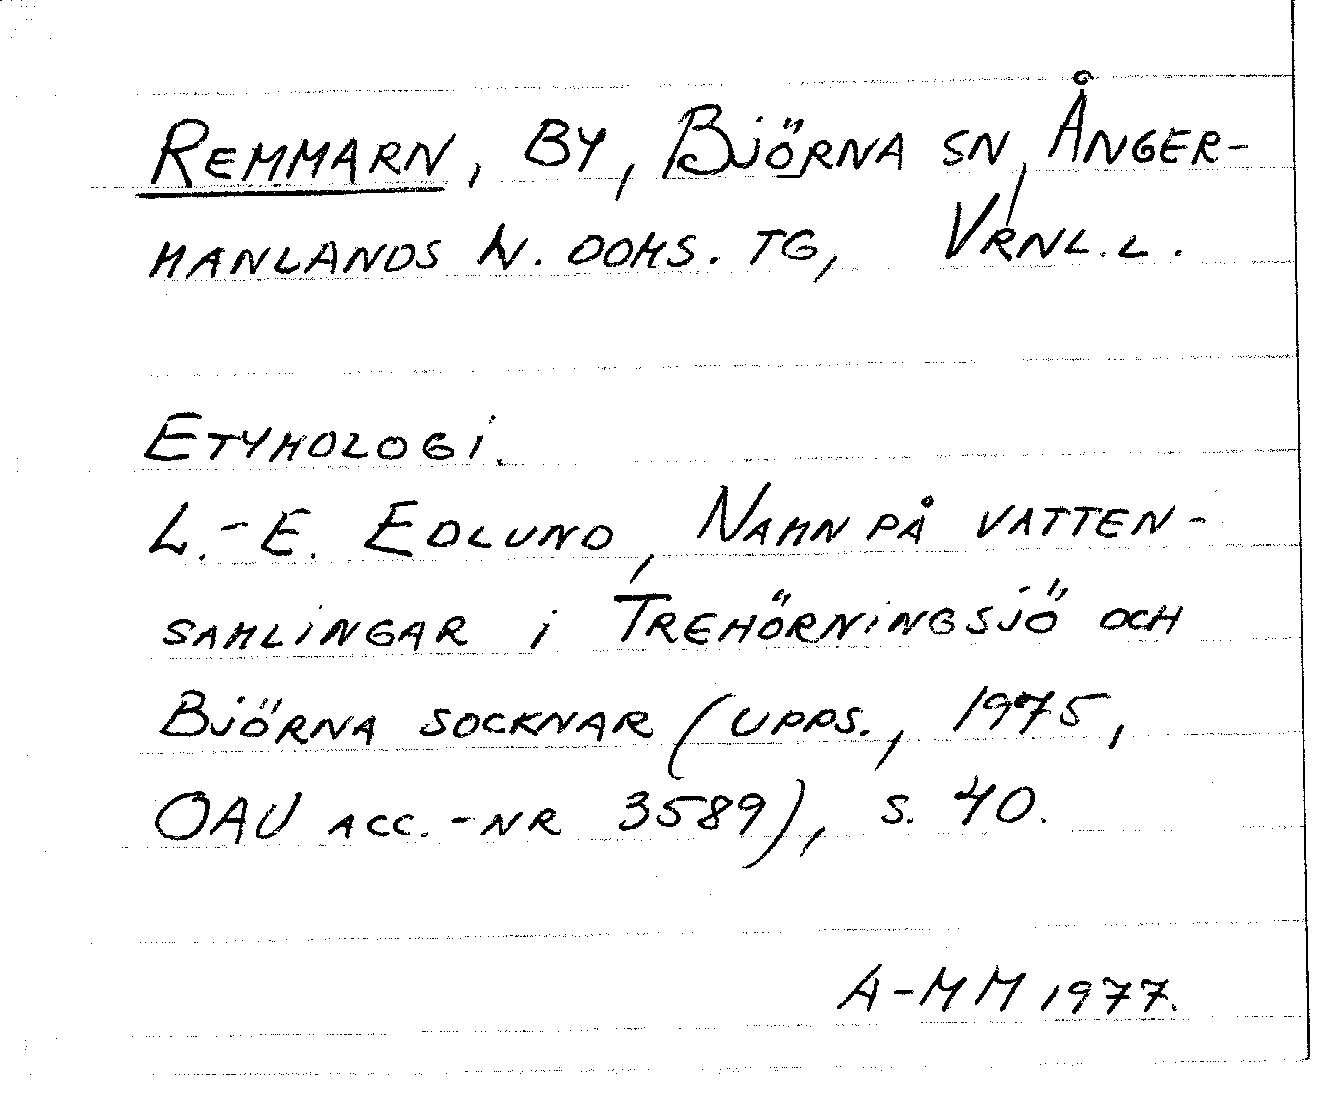 Remmarn, by, Björna sn, Ånger-
manlands N. doms. tg, Vrnl. l.
Etymologi.
L.-E. Edlund, Namn på vatten-
samlingar i Trehörningsjö och
Björna socknar (Upps., 1975,
OAU acc.-nr 3589), s. 40.
A-MM 1977.